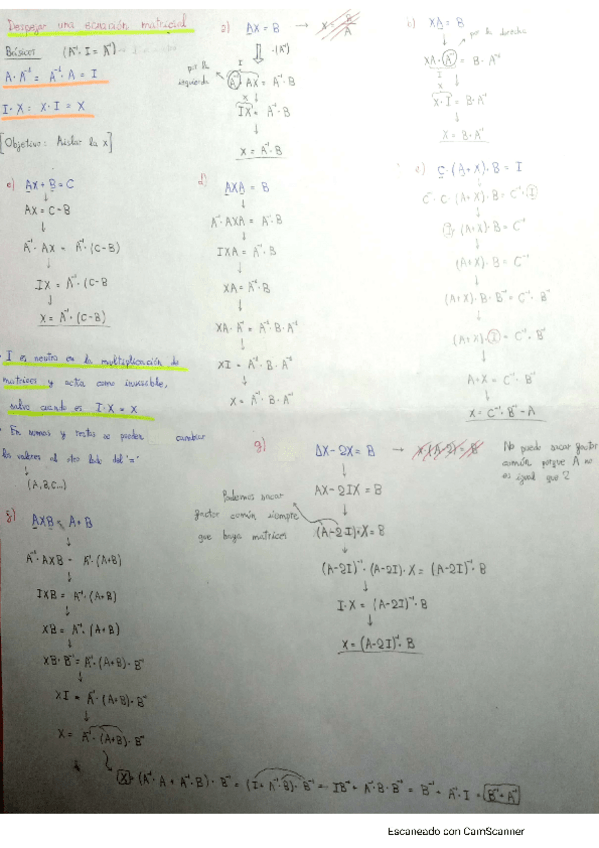 Despejar una ecuación matricial
Básicos (A⁻¹ · I = A⁻¹)
A · A⁻¹ = A⁻¹ · A = I
I · X = X · I = X
[Objetivo: Aislar la x]
a) AX = B → X = B/A
↓ · (A⁻¹)
por la izquierda
A⁻¹ · AX = A⁻¹ · B
↓
IX = A⁻¹ · B
↓
X = A⁻¹ · B
b) XA = B
↓ por la derecha
XA · A⁻¹ = B · A⁻¹
↓
X · I = B · A⁻¹
↓
X = B · A⁻¹
c) AX + B = C
↓
AX = C - B
↓
A⁻¹ · AX = A⁻¹ · (C - B)
↓
IX = A⁻¹ · (C - B
↓
X = A⁻¹ · (C - B)
d) AXA = B
↓
A⁻¹ · AXA = A⁻¹ · B
↓
IXA = A⁻¹ · B
↓
XA = A⁻¹ · B
↓
XA · A⁻¹ = A⁻¹ · B · A⁻¹
↓
XI = A⁻¹ · B · A⁻¹
↓
X = A⁻¹ · B · A⁻¹
e) C · (A + X) · B = I
↓
C⁻¹ · C · (A + X) · B = C⁻¹ · I
↓
I · (A + X) · B = C⁻¹
↓
(A + X) · B = C⁻¹
↓
(A + X) · B · B⁻¹ = C⁻¹ · B⁻¹
↓
(A + X) · I = C⁻¹ · B⁻¹
↓
A + X = C⁻¹ · B⁻¹
↓
X = C⁻¹ · B⁻¹ - A
· I es neutro en la multiplicación de
matrices y actúa como invisible,
salvo cuando es I · X = X
· En sumas y restas se pueden cambiar
los valores al otro lado del "="
↓
(A, B, C...)
f) AXB = A + B
↓
A⁻¹ · AXB = A⁻¹ · (A + B)
↓
IXB = A⁻¹ · (A + B)
↓
XB = A⁻¹ · (A + B)
↓
XB · B⁻¹ = A⁻¹ · (A + B) · B⁻¹
↓
XI = A⁻¹ · (A + B) · B⁻¹
↓
X = A⁻¹ · (A + B) · B⁻¹
X = (A⁻¹ · A + A⁻¹ · B) · B⁻¹ = (I + A⁻¹ · B) · B⁻¹ = IB⁻¹ + A⁻¹ · B · B⁻¹ = B⁻¹ + A⁻¹ · I = B⁻¹ + A⁻¹
g) AX - 2X = B → X · (A - 2) = B
No puedo sacar factor
común porque A no
es igual que 2
↓
AX - 2IX = B
↓
Podemos sacar
factor común siempre
que haya matrices
(A - 2I) · X = B
↓
(A - 2I)⁻¹ · (A - 2I) · X = (A - 2I)⁻¹ · B
↓
I · X = (A - 2I)⁻¹ · B
↓
X = (A - 2I)⁻¹ · B
Escaneado con CamScanner